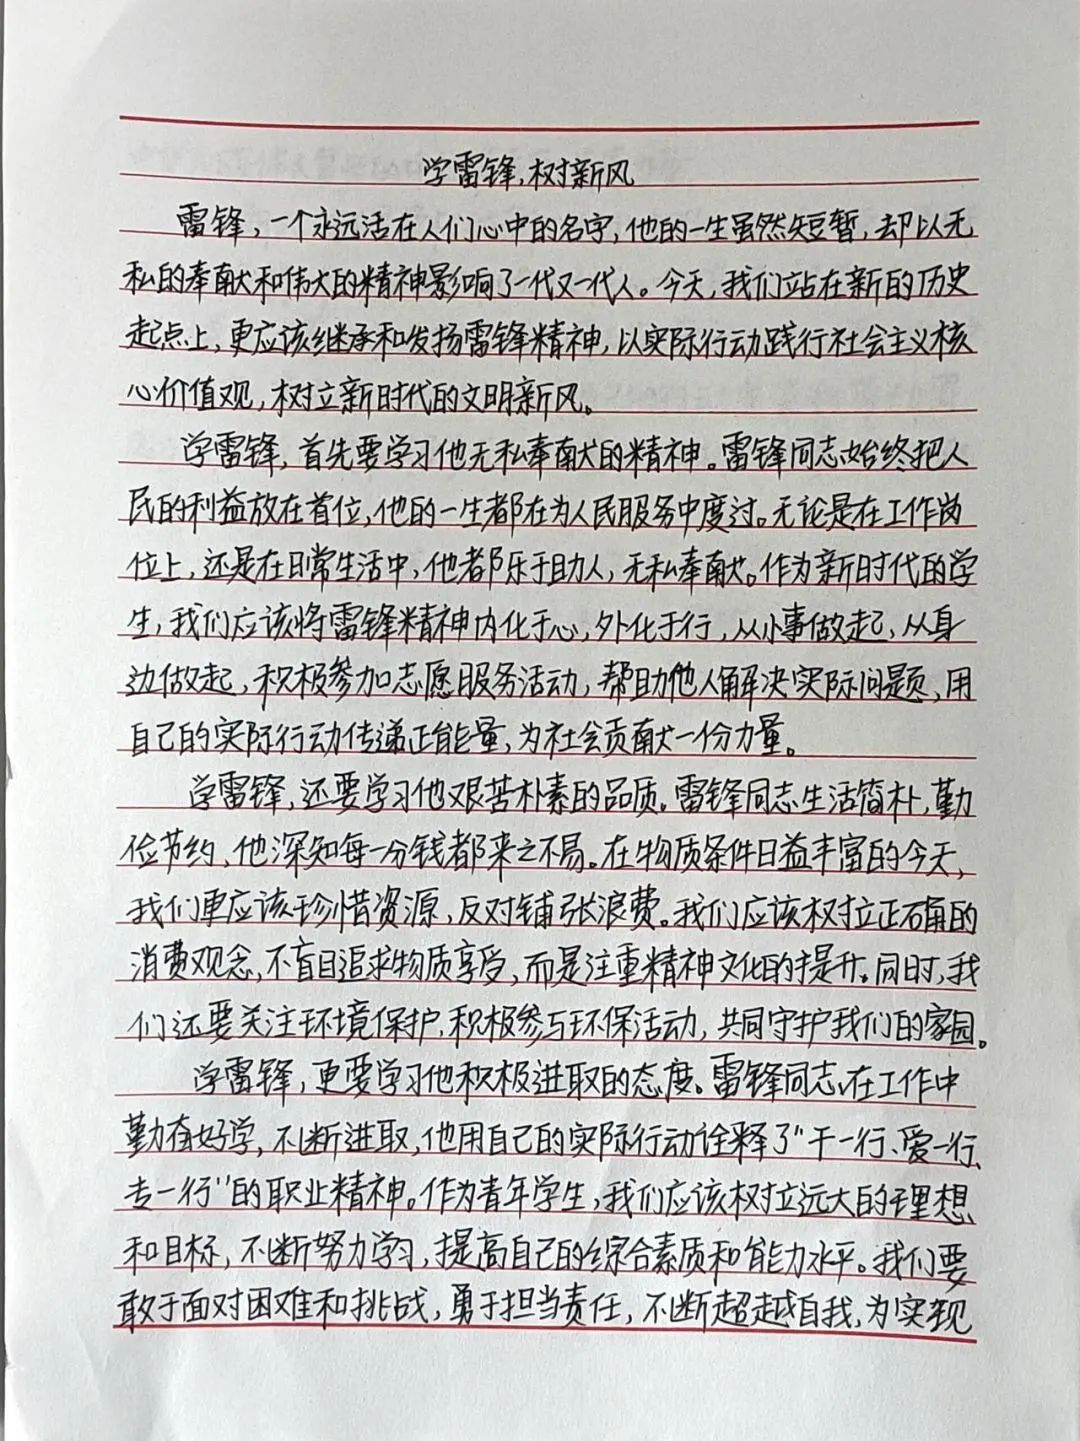 学雷锋,树新风
雷锋,一个永远活在人们心中的名字,他的一生虽然短暂,却以无
私的奉献和伟大的精神影响了一代又一代人。今天,我们站在新的历史
起点上,更应该继承和发扬雷锋精神,以实际行动践行社会主义核
心价值观,树立新时代的文明新风。
学雷锋,首先要学习他无私奉献的精神。雷锋同志始终把人
民的利益放在首位,他的一生都在为人民服务中度过。无论是在工作岗
位上,还是在日常生活中,他都乐于助人,无私奉献。作为新时代的学
生,我们应该将雷锋精神内化于心,外化于行,从小事做起,从身
边做起,积极参加志愿服务活动,帮助他人解决实际问题,用
自己的实际行动传递正能量,为社会贡献一份力量。
学雷锋,还要学习他艰苦朴素的品质。雷锋同志生活简朴,勤
俭节约,他深知每一分钱都来之不易。在物质条件日益丰富的今天,
我们更应该珍惜资源,反对铺张浪费。我们应该树立正确的
消费观念,不盲目追求物质享受,而是注重精神文化的提升。同时,我
们还要关注环境保护,积极参与环保活动,共同守护我们的家园。
学雷锋,更要学习他积极进取的态度。雷锋同志在工作中
勤奋好学,不断进取,他用自己的实际行动诠释了"干一行、爱一行、
专一行"的职业精神。作为青年学生,我们应该树立远大的理想
和目标,不断努力学习,提高自己的综合素质和能力水平。我们要
敢于面对困难和挑战,勇于担当责任,不断超越自我,为实现